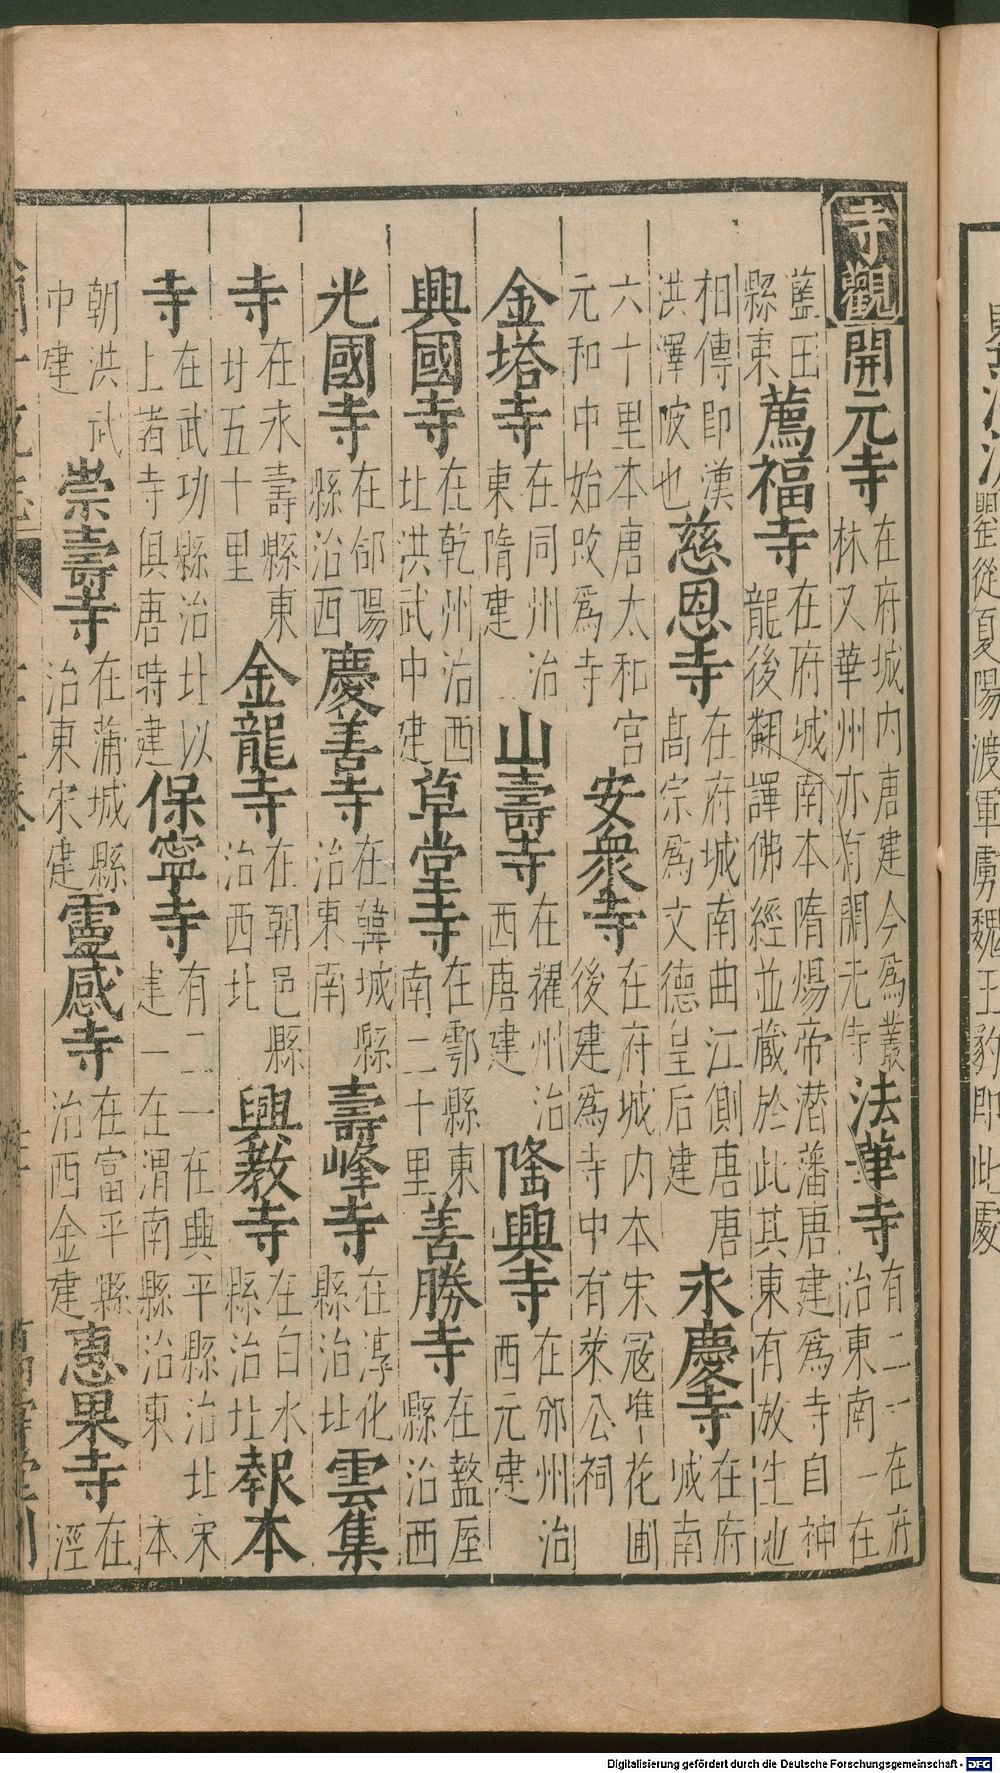 關從夏陽渡軍虜魏王豹即此處
寺觀 開元寺 在府城内唐建今為叢林又華州亦有開元寺 法華寺 有二一在府治東南一在
藍田縣東 薦福寺 在府城南本隋煬帝潛藩唐建為寺自神龍後翻譯佛經並藏於此其東有放生池
相傳即漢洪澤陂也 慈恩寺 在府城南曲江側唐唐高宗為文德皇后建 永慶寺 在府城南
六十里本唐太和宮元和中始改為寺 安衆寺 在府城内本宋寇準花圃後建為寺中有萊公祠
金塔寺 在同州治東隋建 山壽寺 在耀州治西唐建 隆興寺 在邠州治西元建
興國寺 在乾州治西北洪武中建 草堂寺 在鄠縣東南二十里 善勝寺 在盩厔縣治西
光國寺 在郃陽縣治西 慶善寺 在韓城縣治東南 壽峰寺 在淳化縣治北 雲集
寺 在永壽縣東廿五十里 金龍寺 在朝邑縣治西北 興教寺 在白水縣治北 報本
寺 在武功縣治北以上著寺俱唐時建 保寧寺 有二一在興平縣治北宋建一在渭南縣治東本
朝洪武中建 崇壽寺 在蒲城縣治東宋建 靈感寺 在富平縣治西金建 惠果寺 在涇
Digitalisierung gefördert durch die Deutsche Forschungsgemeinschaft - DFG